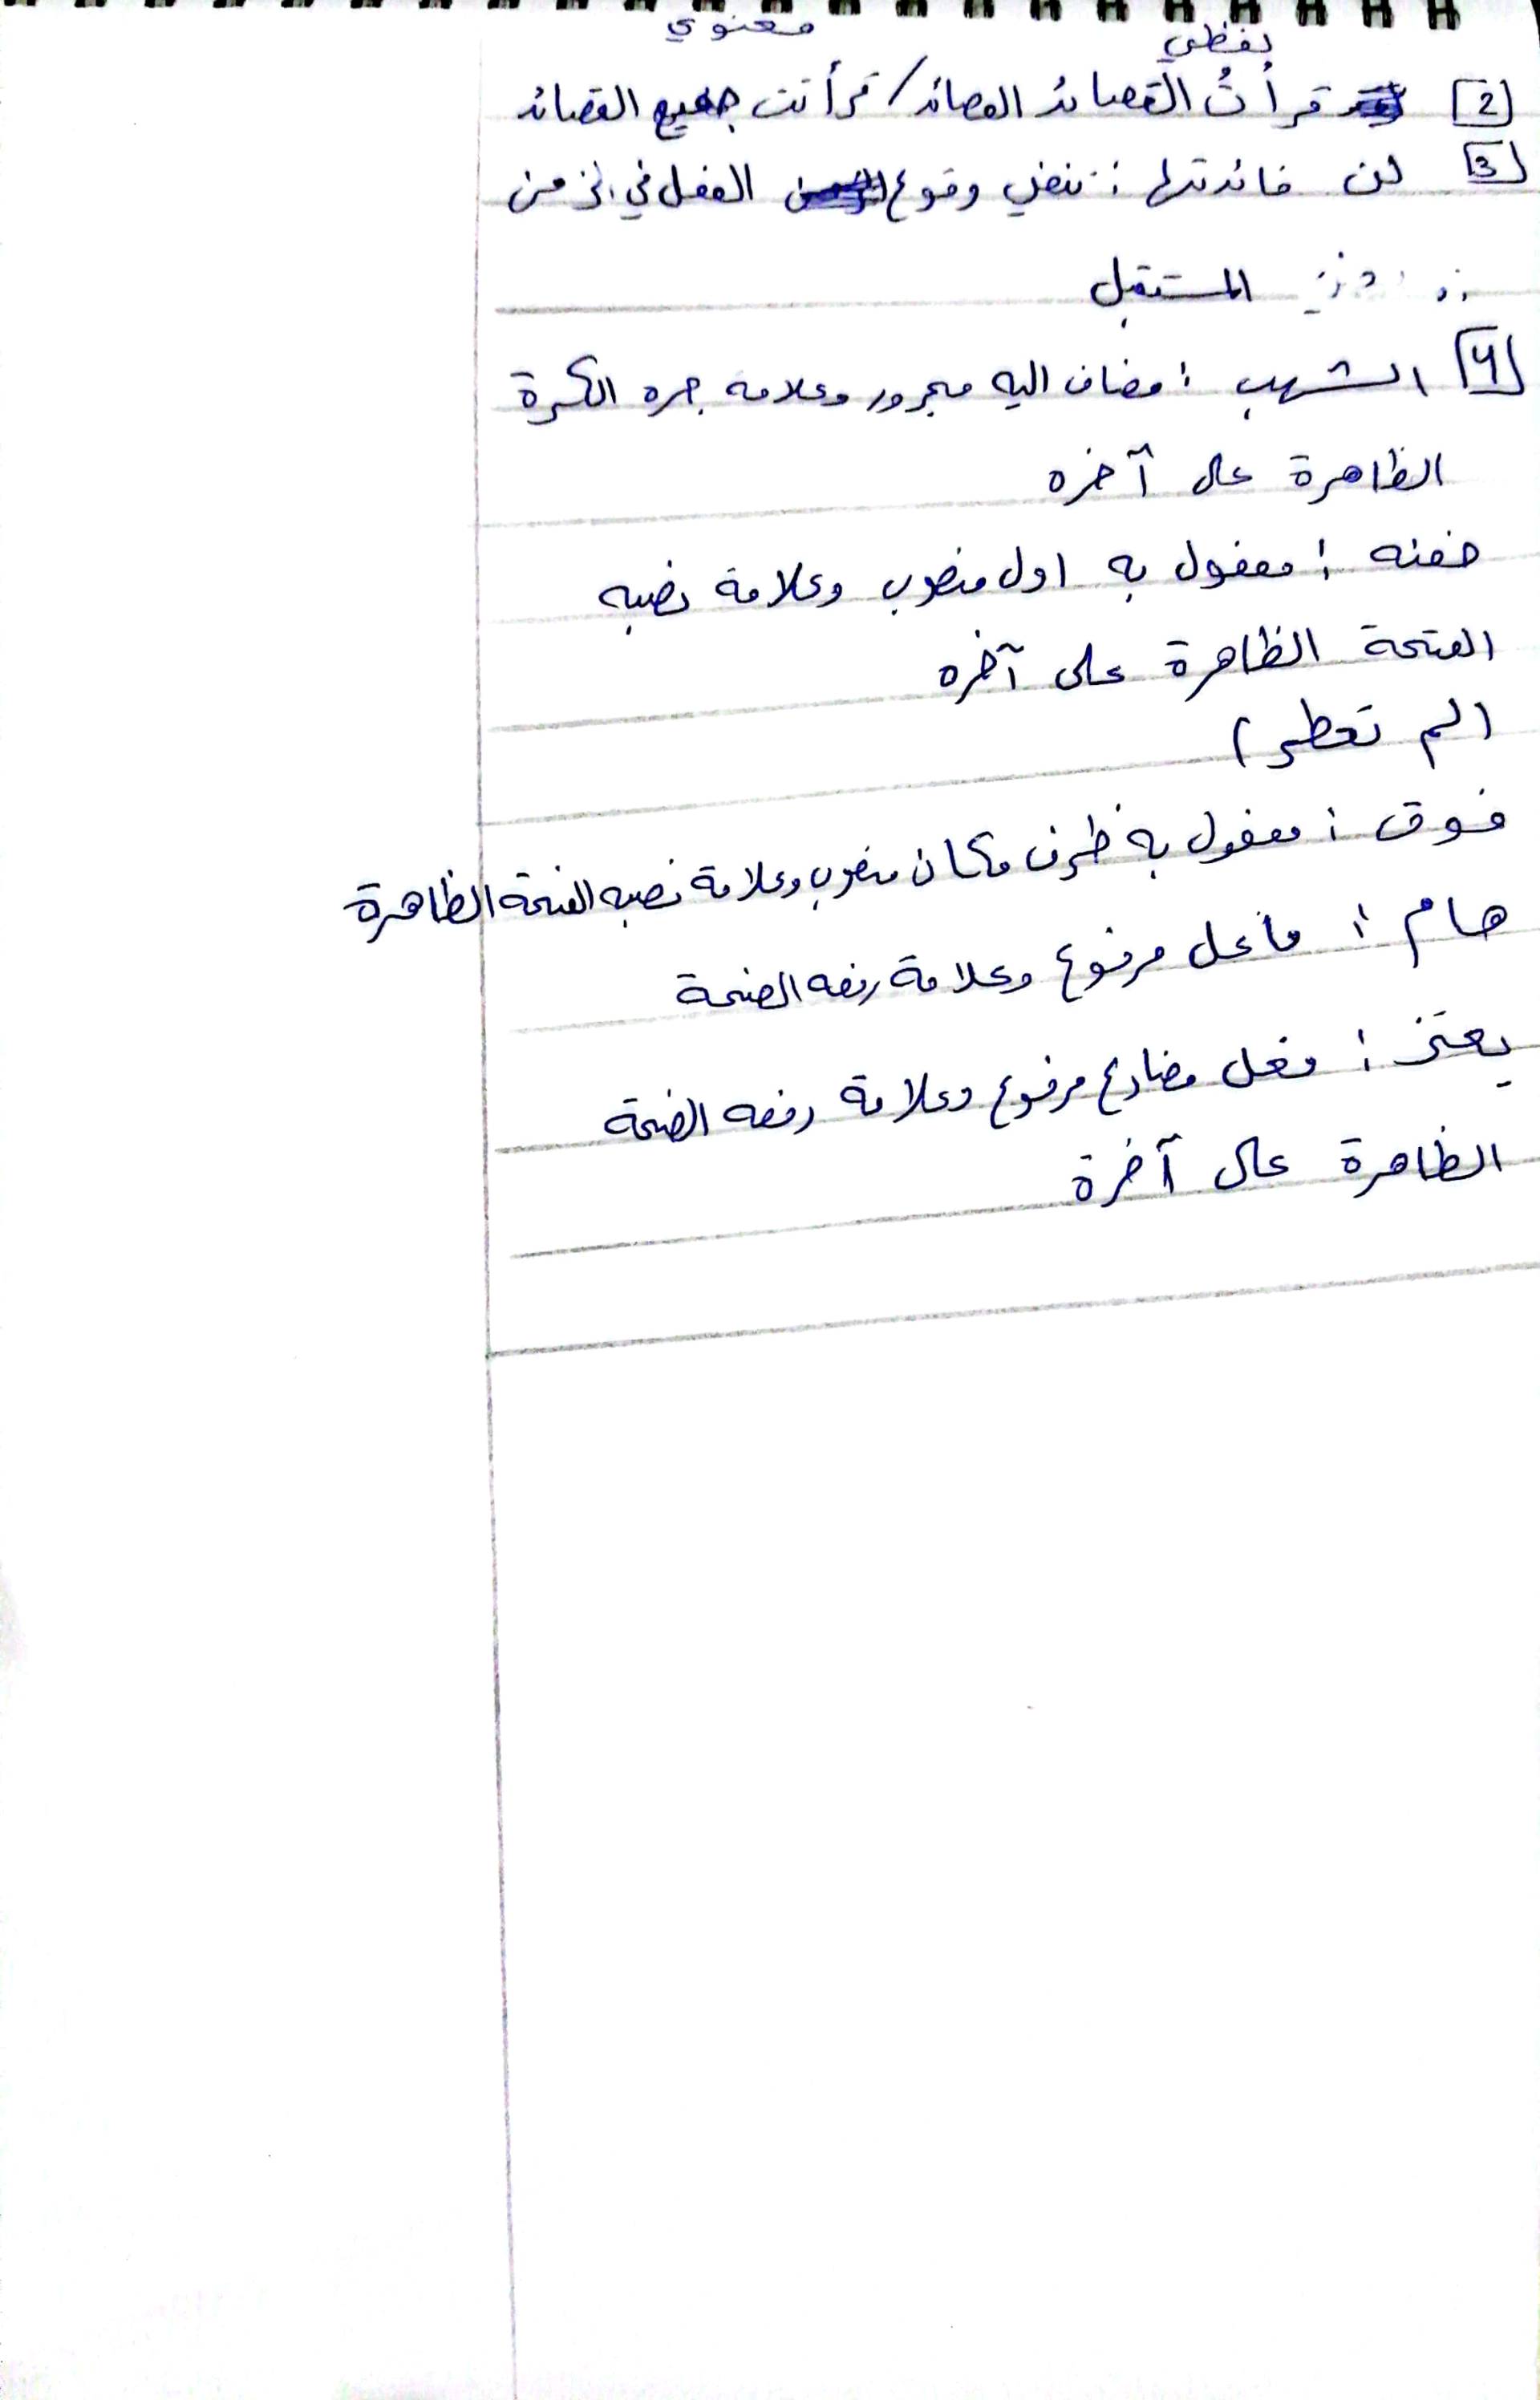 لفظي معنوي
[2] قرأتُ القصائد القصائد / قرأت جميع القصائد
[3] لن فائدتها : تنفي وقوع الفعل في الزمن
المستقبل
[4] الشهب : مضاف اليه مجرور وعلامه جره الكسرة
الظاهرة على آخره
حفنه : مفعول به اول منصوب وعلامة نصبه
الفتحة الظاهرة على آخره
(لم تعطر)
فوق : مفعول به ظرف مكان منصوب وعلامة نصبه الفتحة الظاهرة
هام : فاعل مرفوع وعلامة رفعه الضمة
يعتز : فعل مضارع مرفوع وعلامة رفعه الضمة
الظاهرة على آخرة